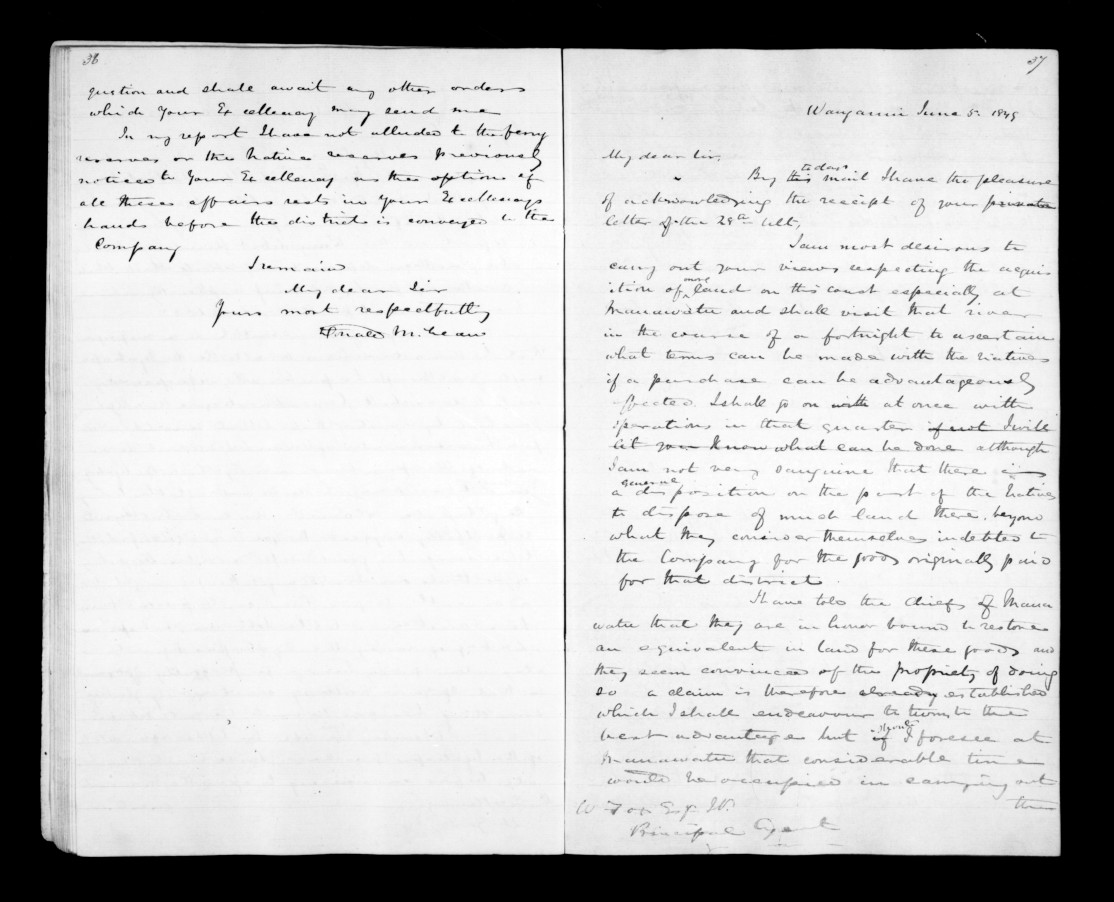 36
question and shall await any other orders
which Your Excellency may send me
In my report I have not alluded to the ferry
reserves or the Native reserves previously
noticed to Your Excellency as the option of
all these affairs rests in Your Excellencys
hands before the districts is conveyed to the
Company
I remain
My dear Sir
Yours most respectfully
Donald McLean
37
Wanganui June 5. 1849
My dear Sir
todays
By this mail I have the pleasure
of acknowledging the receipt of your private
letter of the 28th Ult,
I am most desirous to
carry out your views respecting the acquis
more
ition of land on this coast especially at
Manawatu and shall visit that river
in the course of a fortnight to ascertain
what terms can be made with the Natives
if a purchase can be advantageously
effected. I shall go on with at once with
operations in that quarter if not I will
let you know what can be done although
I am not very sanguine that there is
general
a disposition on the part of the Natives
to dispose of much land there, beyond
what they consider themselves indebted to
the Company for the goods originally paid
for that district.
I have told the chiefs of Mana
watu that they are in honor bound to restore
an equivalent in land for these goods and
they seem convinced of the propriety of doing
so a claim is therefore already established
which I shall endeavour to turn to the
should
best advantage but if I foresee at
Manawatu that considerable time
would be occupied in carrying out
the
W Fox Esq JP.
Principal Agent